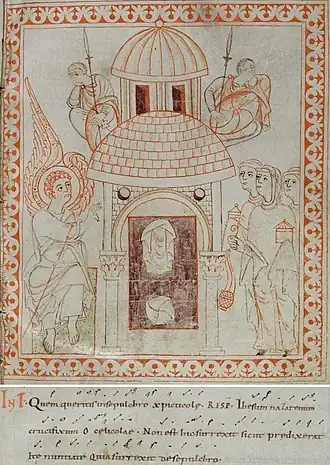 INT. Quem queritis insepulchro xpicticole. RISP. Ihesum nazarenum
crucifixum O celicolae. Non est hic surrexit sicut predixerat
Ite nuntiate quia surrexit de sepulchro.